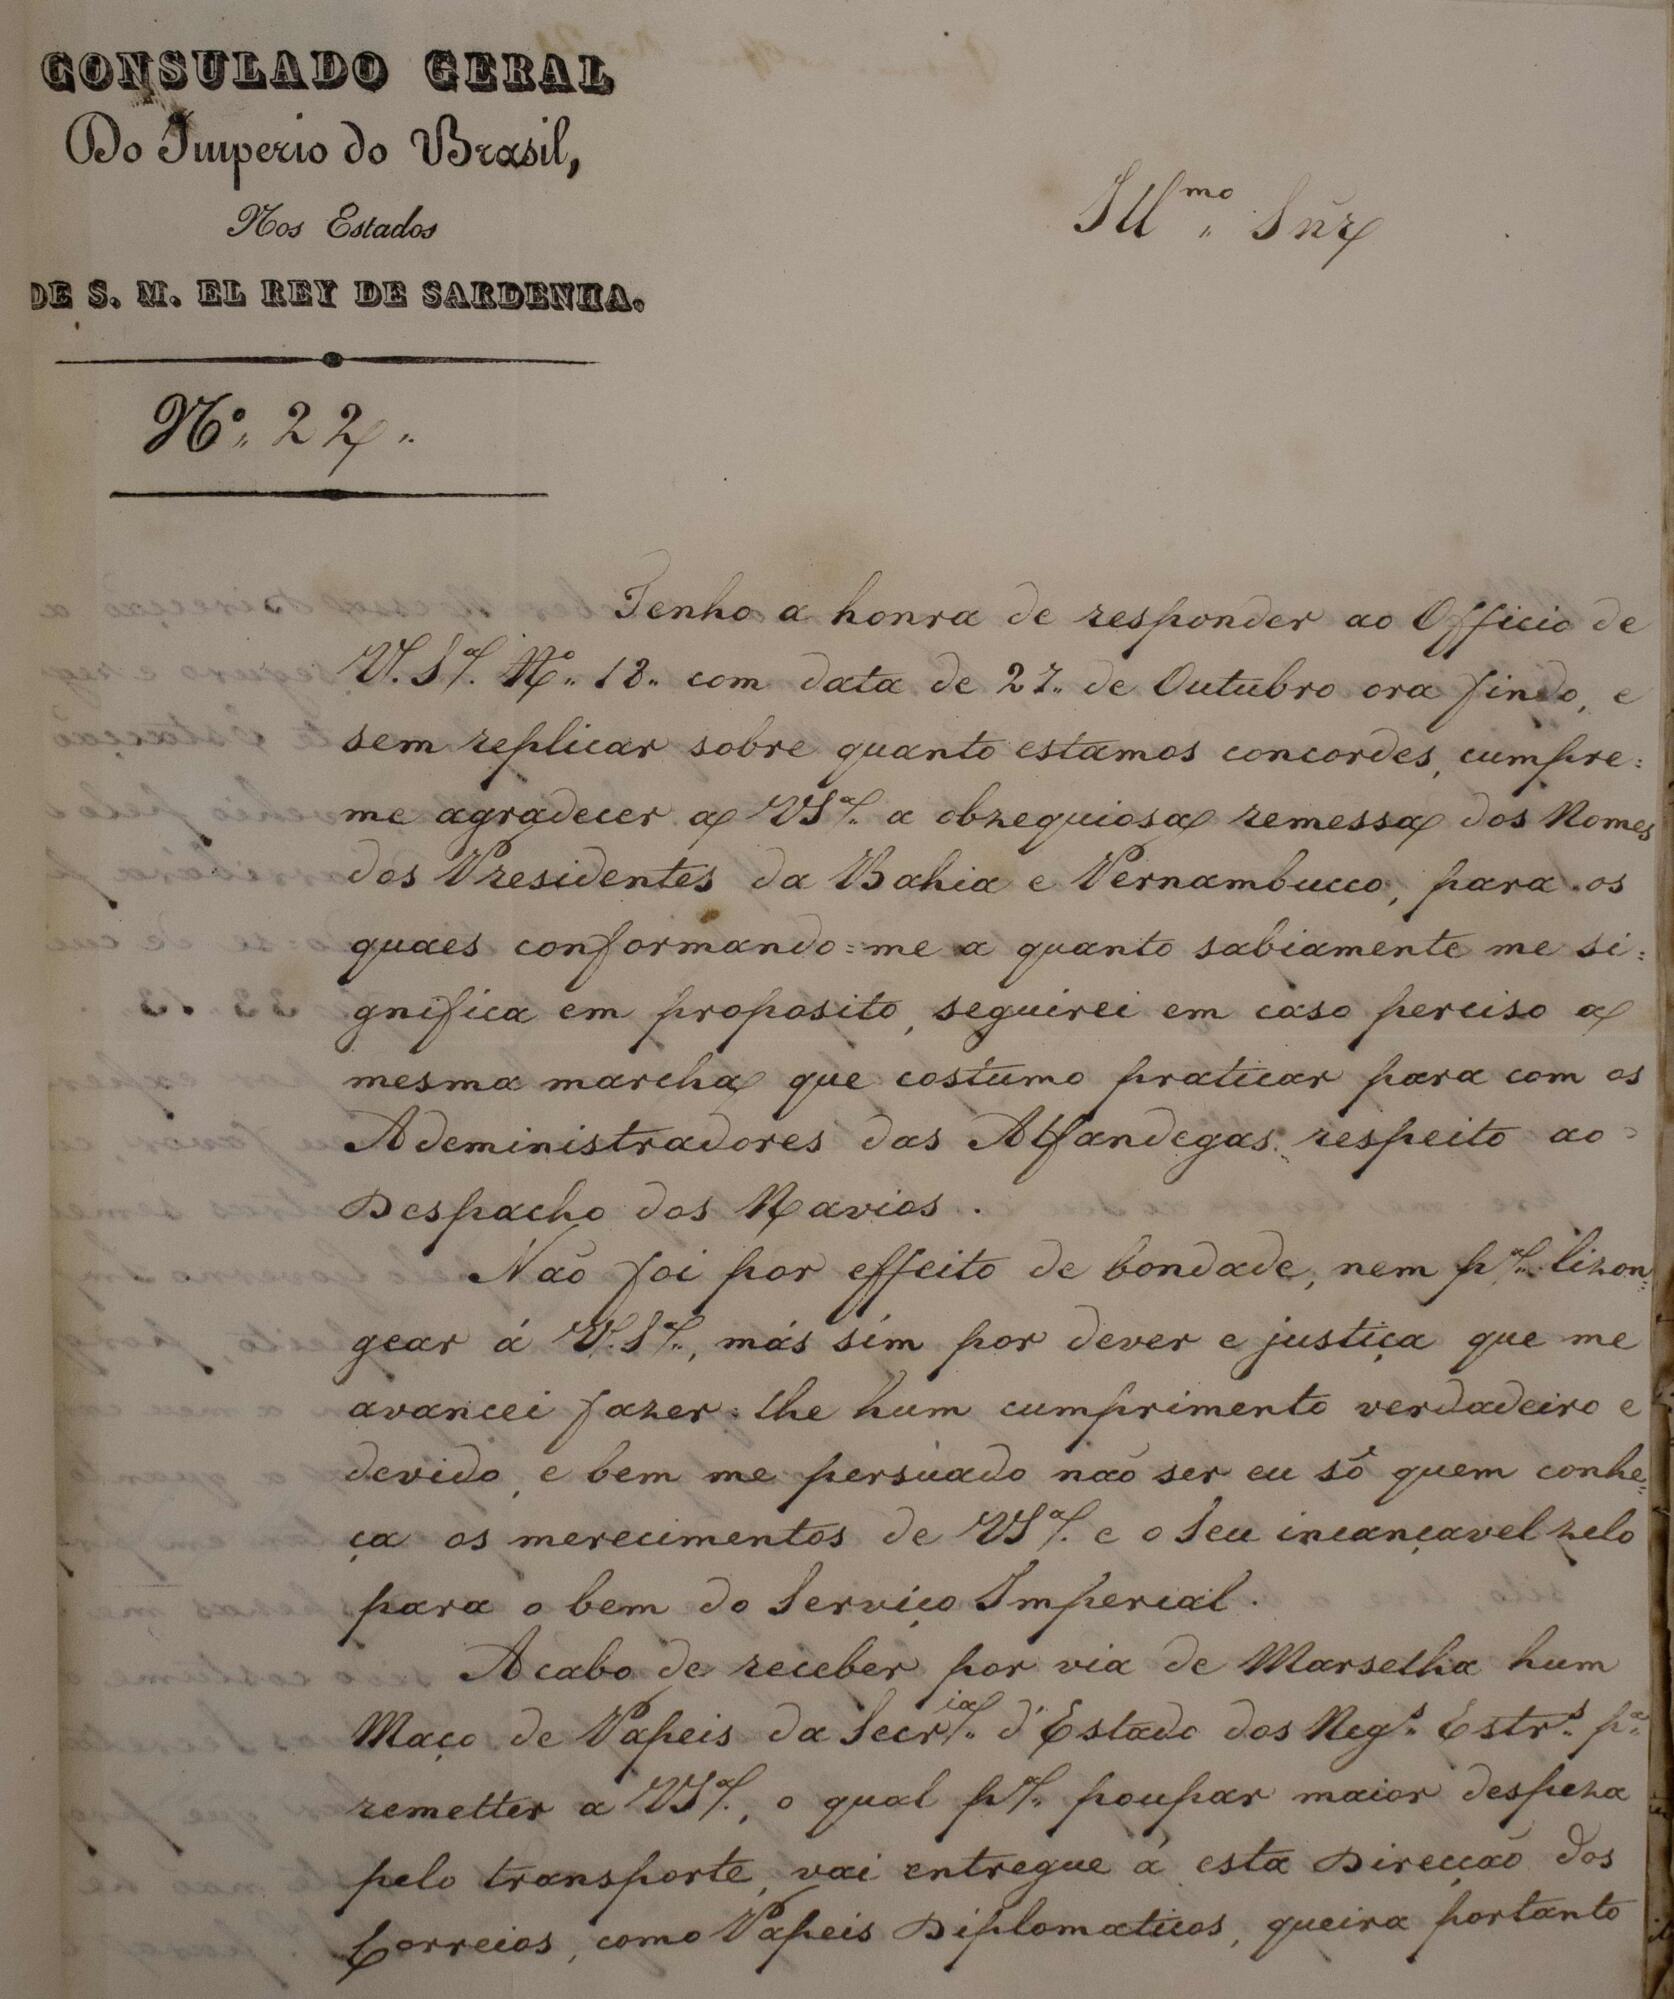 CONSULADO GERAL
Do Imperio do Brasil,
Nos Estados
DE S. M. EL REY DE SARDENHA.
Nº. 22.
Illmo. Snr
Tenho a honra de responder ao Officio de
V. Sª. Nº. 18. com data de 27. de Outubro ora findo, e
sem replicar sobre quanto estamos concordes, cumpre=
me agradecer a VSª. a obzequiosa remessa dos Nomes
dos Presidentes da Bahia e Pernambucco, para os
quaes conformando=me a quanto sabiamente me si=
gnifica em proposito, seguirei em caso perciso a
mesma marcha que costumo praticar para com os
Adeministradores das Alfandegas respeito ao
Despacho dos Navios.
Não foi por effeito de bondade, nem pª. lizon=
gear á V. Sª., más sím por dever e justiça que me
avancei fazer=lhe hum cumprimento verdadeiro e
devido, e bem me persuado não ser eu só quem conhe=
ça os merecimentos de VSª. e o Seu incançavel zelo
para o bem do Serviço Imperial.
Acabo de receber por via de Marselha hum
Maço de Papeis da Secria. d'Estado dos Negs. Estrs. pª.
remetter a VSª., o qual pª. poupar maior despeza
pelo transporte, vai entregue á esta Direcção dos
Correios, como Papeis Diplomaticos, queira portanto